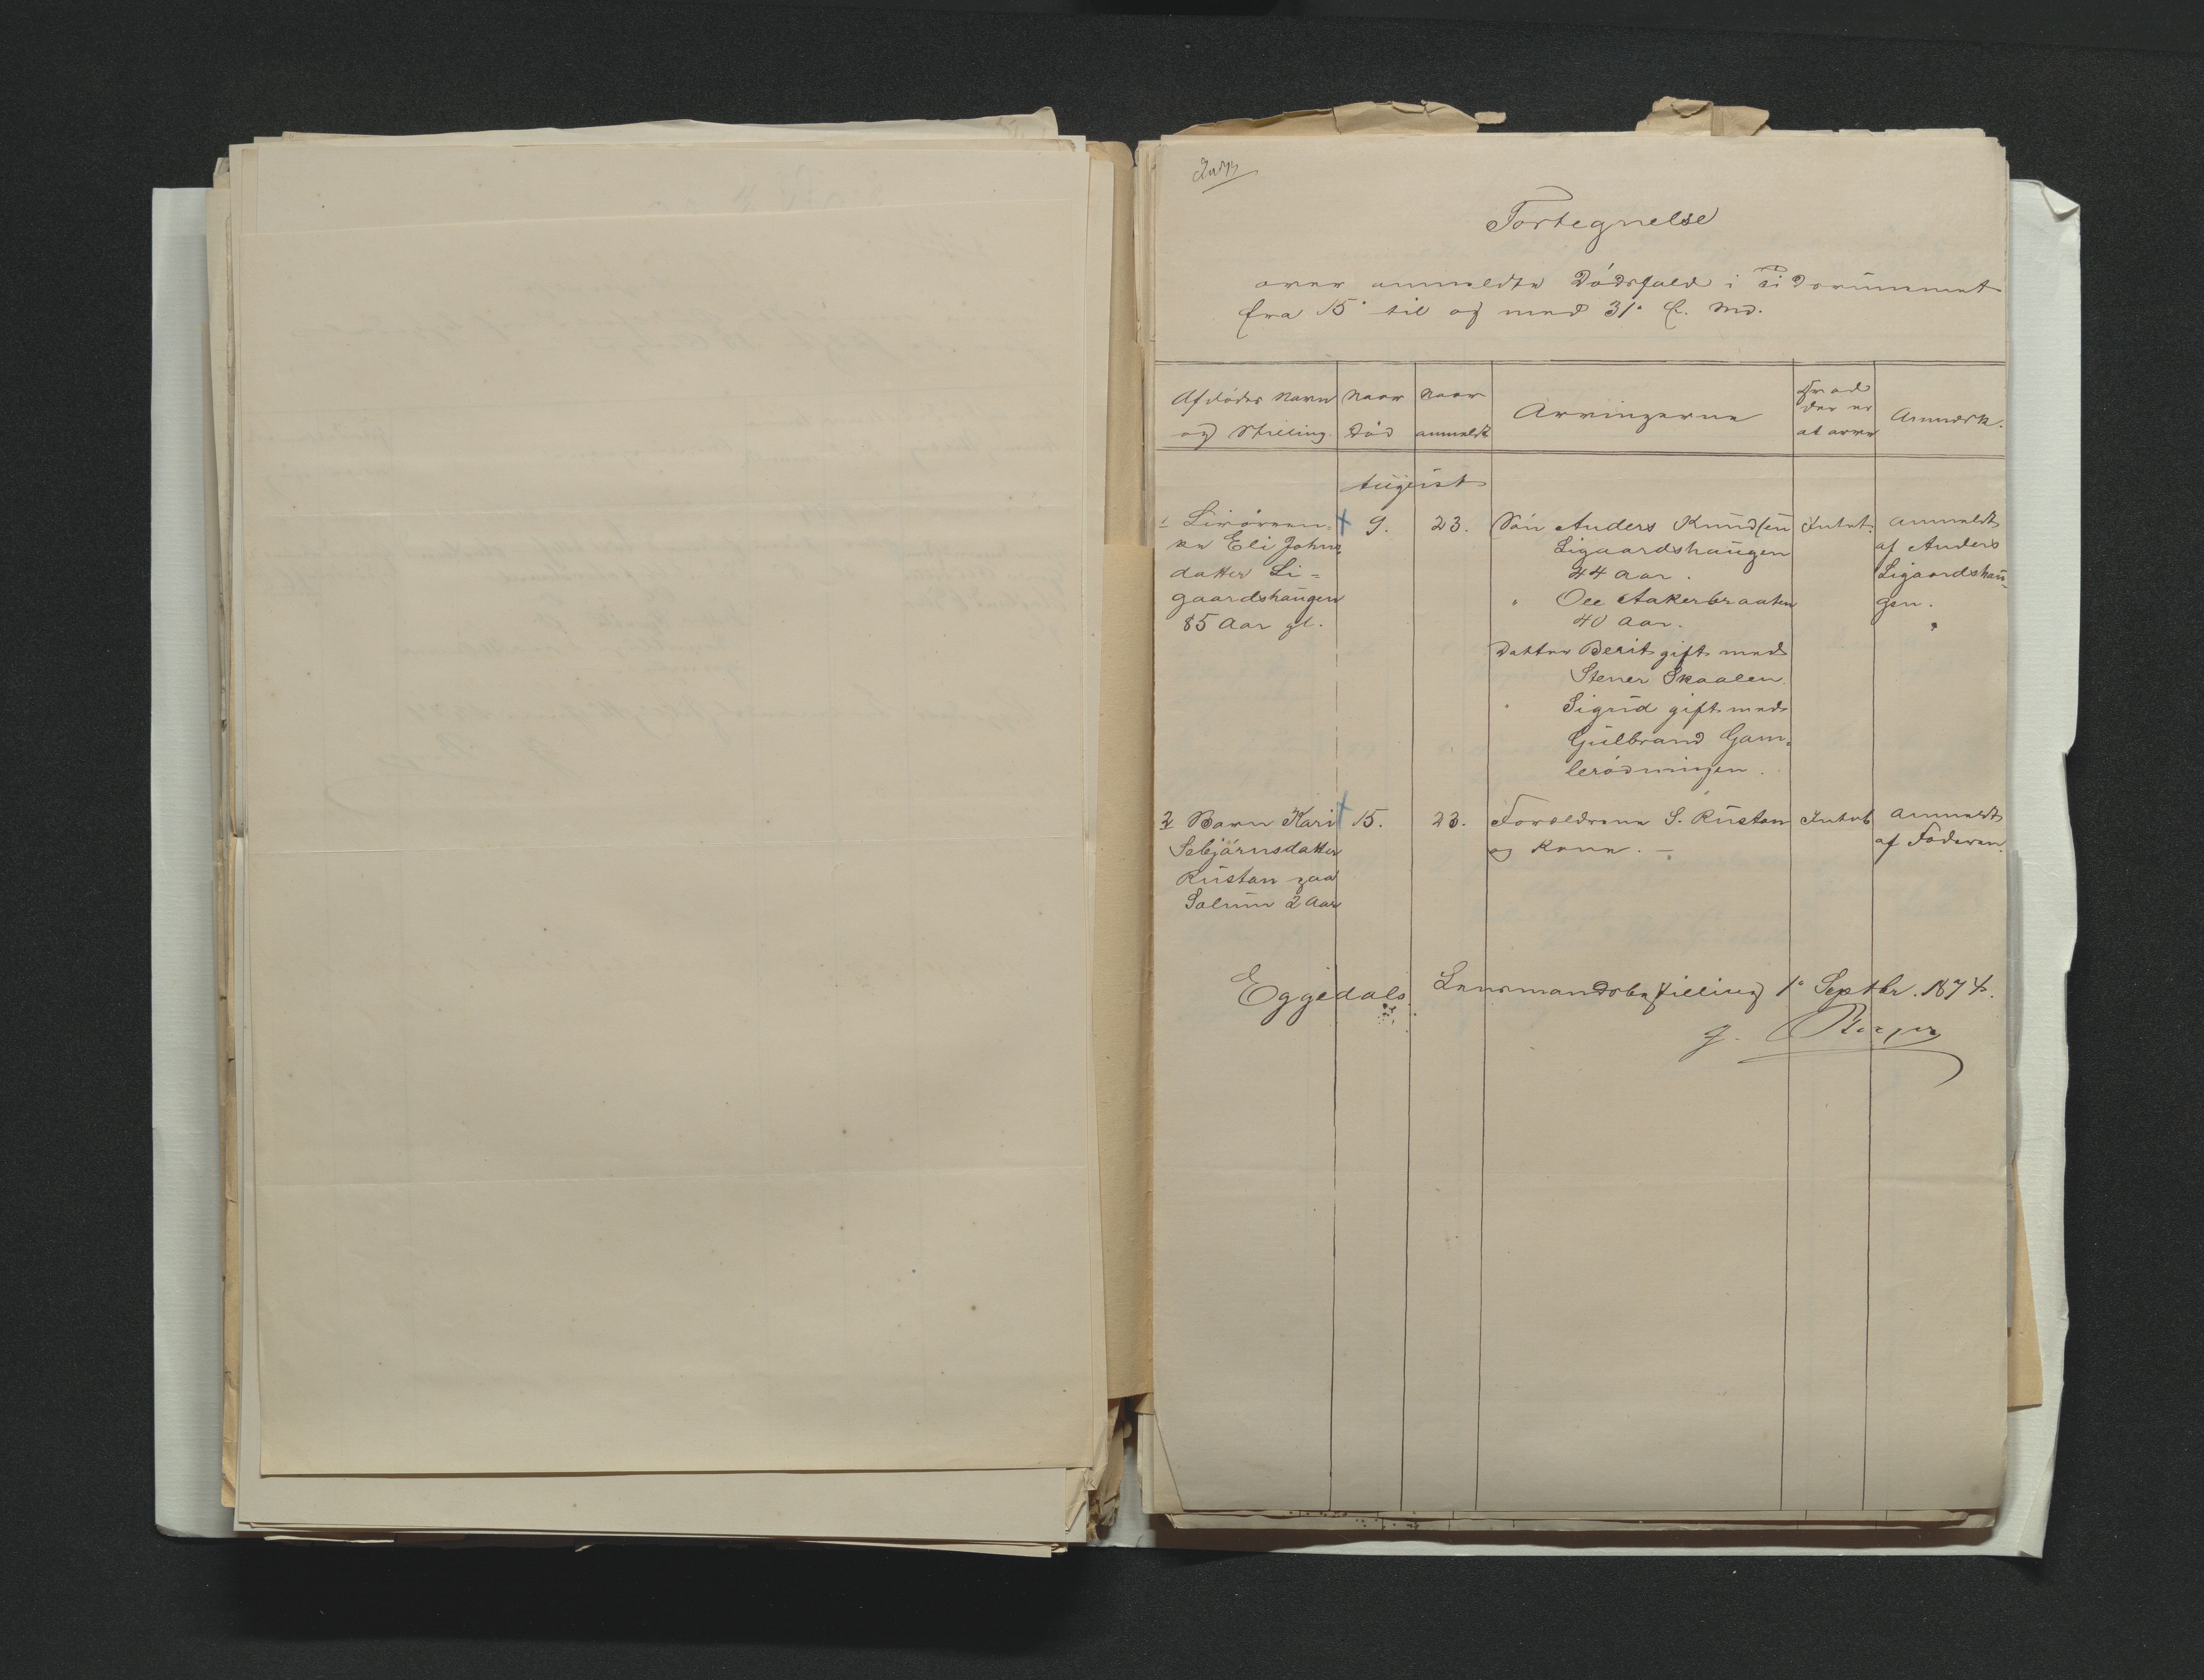 Fortegnelse
over anmeldte Dödsfald i Tidsrummet
fra 15de til og med 31te f. Md.
Afdödes Navn og Stilling.
Naar Död
Naar anmeldt
Arvingerne
Hvad der er at arve
Anmærk.
August
1 Livörenn-
ke Eli Johns-
datter Li-
gaardshaugen
85 Aar gl.
9.
23.
Sön Anders Knudsen
Ligaardshaugen
44 Aar.
" Ole Aakerbraaten
40 Aar.
Datter Berit gift med
Stener Skaalen.
" Sigrid gift med
Gulbrand Gam-
lerödningen.
Intet.
Anmeldt
af Anders
Ligaardshau-
gen.
2 Barn Kari
Sebjörnsdatter
Rustan paa
Solum 2 Aar
15.
23.
Forældrene S. Rustan
og Kone. —
Intet
Anmeldt
af Faderen.
Eggedals Lensmandsbestilling 1e Septbr. 1874.